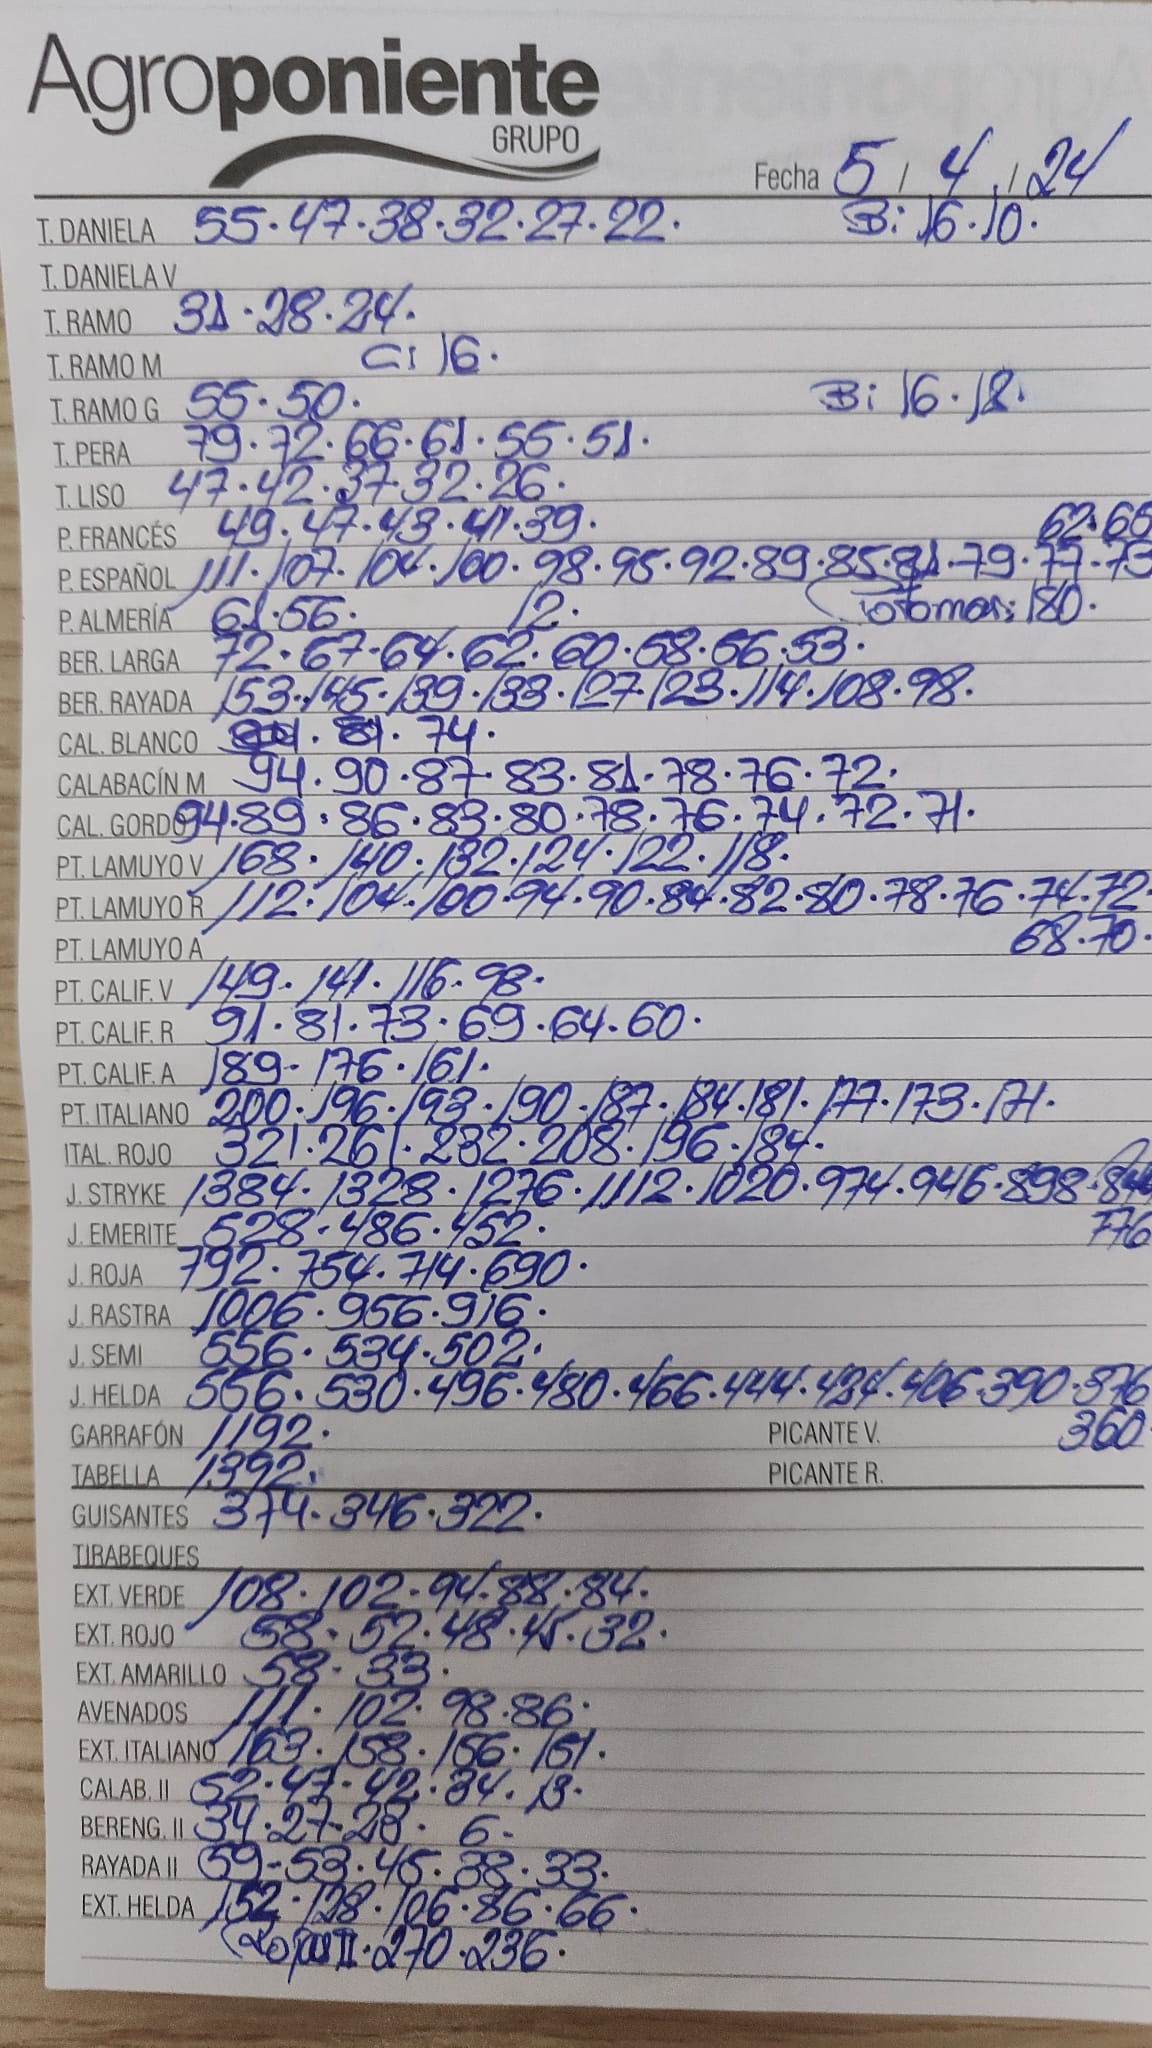 Agroponiente
GRUPO
Fecha 5 / 4 / 24
T. DANIELA 55·47·38·32·27·22· B: 16·10·
T. DANIELA V
T. RAMO 31·28·24·
T. RAMO M C: 16·
T. RAMO G 55·50· B: 16·18·
T. PERA 79·72·66·61·55·51·
T. LISO 47·42·37·32·26·
P. FRANCÉS 49·47·43·41·39· 62·65
P. ESPAÑOL 111·107·104·100·98·95·92·89·85·81·79·77·73
P. ALMERÍA 61·56· 12· 180·
BER. LARGA 72·67·64·62·60·58·56·53·
BER. RAYADA 153·145·139·133·127·123·114·108·98·
CAL. BLANCO 81·74·
CALABACÍN M 94·90·87·83·81·78·76·72·
CAL. GORDO 94·89·86·83·80·78·76·74·72·71·
PT. LAMUYO V 168·140·132·124·122·118·
PT. LAMUYO R 112·104·100·94·90·84·82·80·78·76·74·72·
PT. LAMUYO A 68·70·
PT. CALIF. V 149·141·116·98·
PT. CALIF. R 91·81·73·69·64·60·
PT. CALIF. A 189·176·161·
PT. ITALIANO 200·196·193·190·187·184·181·177·173·171·
ITAL. ROJO 321·261·232·208·196·184·
J. STRYKE 1384·1328·1276·1112·1020·974·946·898·844
J. EMERITE 528·486·452· 776
J. ROJA 792·754·714·690·
J. RASTRA 1006·956·916·
J. SEMI 556·534·502·
J. HELDA 556·530·496·480·466·444·424·406·390·376
GARRAFÓN 1192· PICANTE V. 360·
TABELLA 1392· PICANTE R.
GUISANTES 374·346·322·
TIRABEQUES
EXT. VERDE 108·102·94·88·84·
EXT. ROJO 58·52·48·45·32·
EXT. AMARILLO 58·33·
AVENADOS 111·102·98·86·
EXT. ITALIANO 163·158·156·151·
CALAB. II 52·47·42·34·13·
BERENG. II 34·27·28· 6-
RAYADA II 59-53·45·38·33·
EXT. HELDA 152·128·106·86·66·
II·270·236·